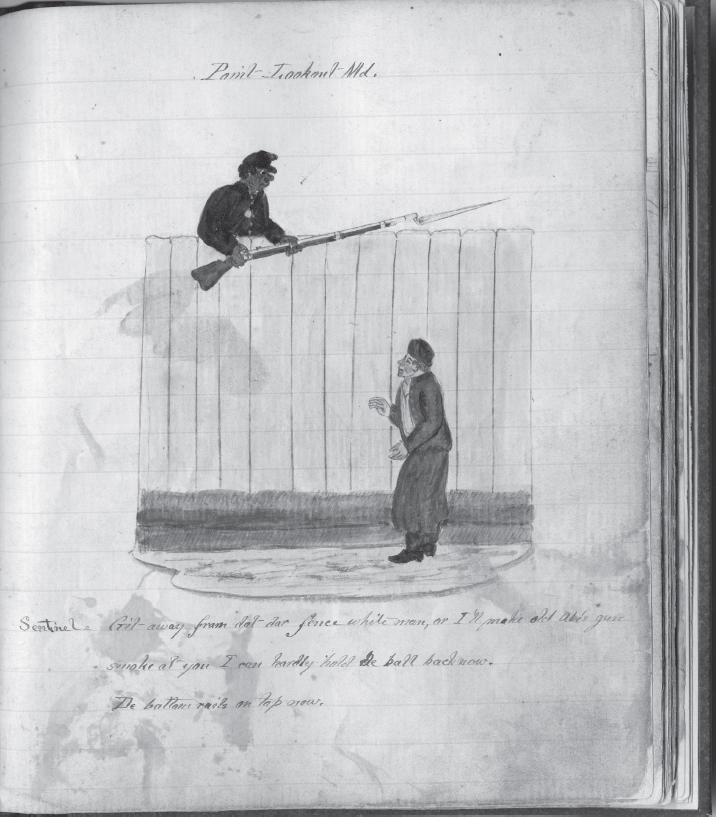 Point Lookout Md.
Sentinel - Git away from dat dar fence white man, or I'll make old Abe's gun
smoke at you I can hardly hold de ball back now.
De bottom rails on top now.